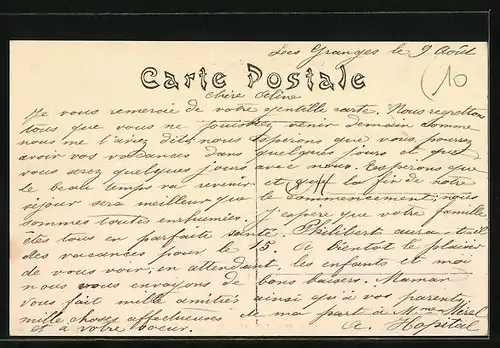 Les Granges le 9 Août
(10
Carte Postale
Chère Céline
Je vous remercie de votre gentille carte. Nous regrettons
tous que vous ne pouissiez venir demain comme
nous me l'aviez dit, nous espérons que vous pourrez
avoir vos vacances dans quelques jours et que
vous serez quelques jours avec nous. Espérons que
le beau temps va revenir et que la fin de notre
séjour sera meilleur que le commencement, nous
sommes toute enrhumée. J'espère que votre famille
êtes tous en parfaite santé. Philibert aura-t-il
des vacances pour le 15. à bientôt le plaisir
de vous voir, en attendant, les enfants et moi
nous vous envoyons de bons baisers. Maman
vous fait mille amitiés ainsi qu'à vos parents,
mille choses affectueuses de ma part à Mme
et à votre soeur. A. Hopital